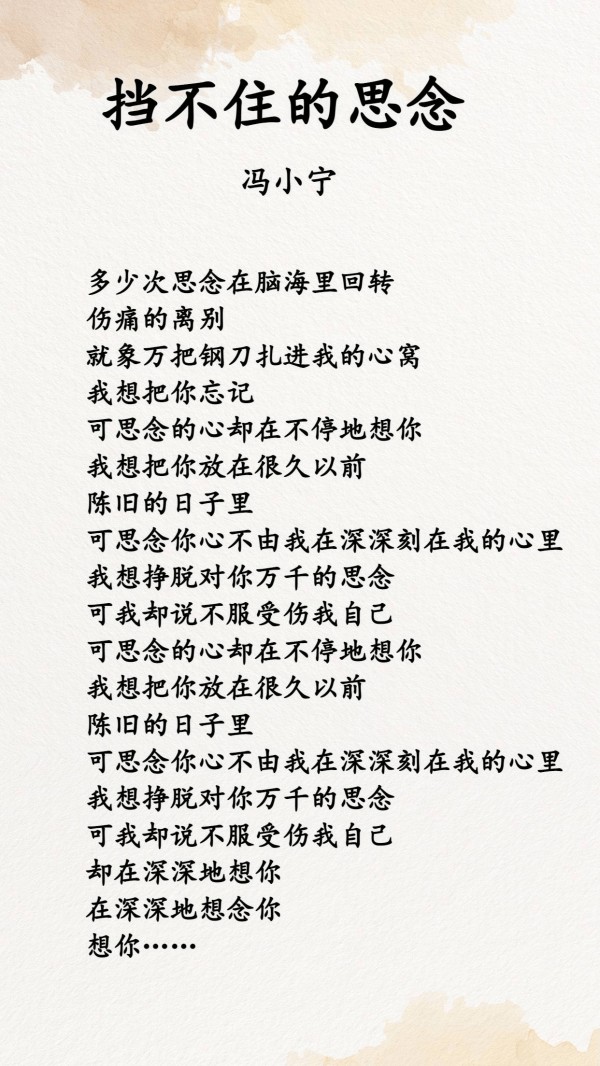 挡不住的思念
冯小宁
多少次思念在脑海里回转
伤痛的离别
就象万把钢刀扎进我的心窝
我想把你忘记
可思念的心却在不停地想你
我想把你放在很久以前
陈旧的日子里
可思念你心不由我在深深刻在我的心里
我想挣脱对你万千的思念
可我却说不服受伤我自己
可思念的心却在不停地想你
我想把你放在很久以前
陈旧的日子里
可思念你心不由我在深深刻在我的心里
我想挣脱对你万千的思念
可我却说不服受伤我自己
却在深深地想你
在深深地想念你
想你……